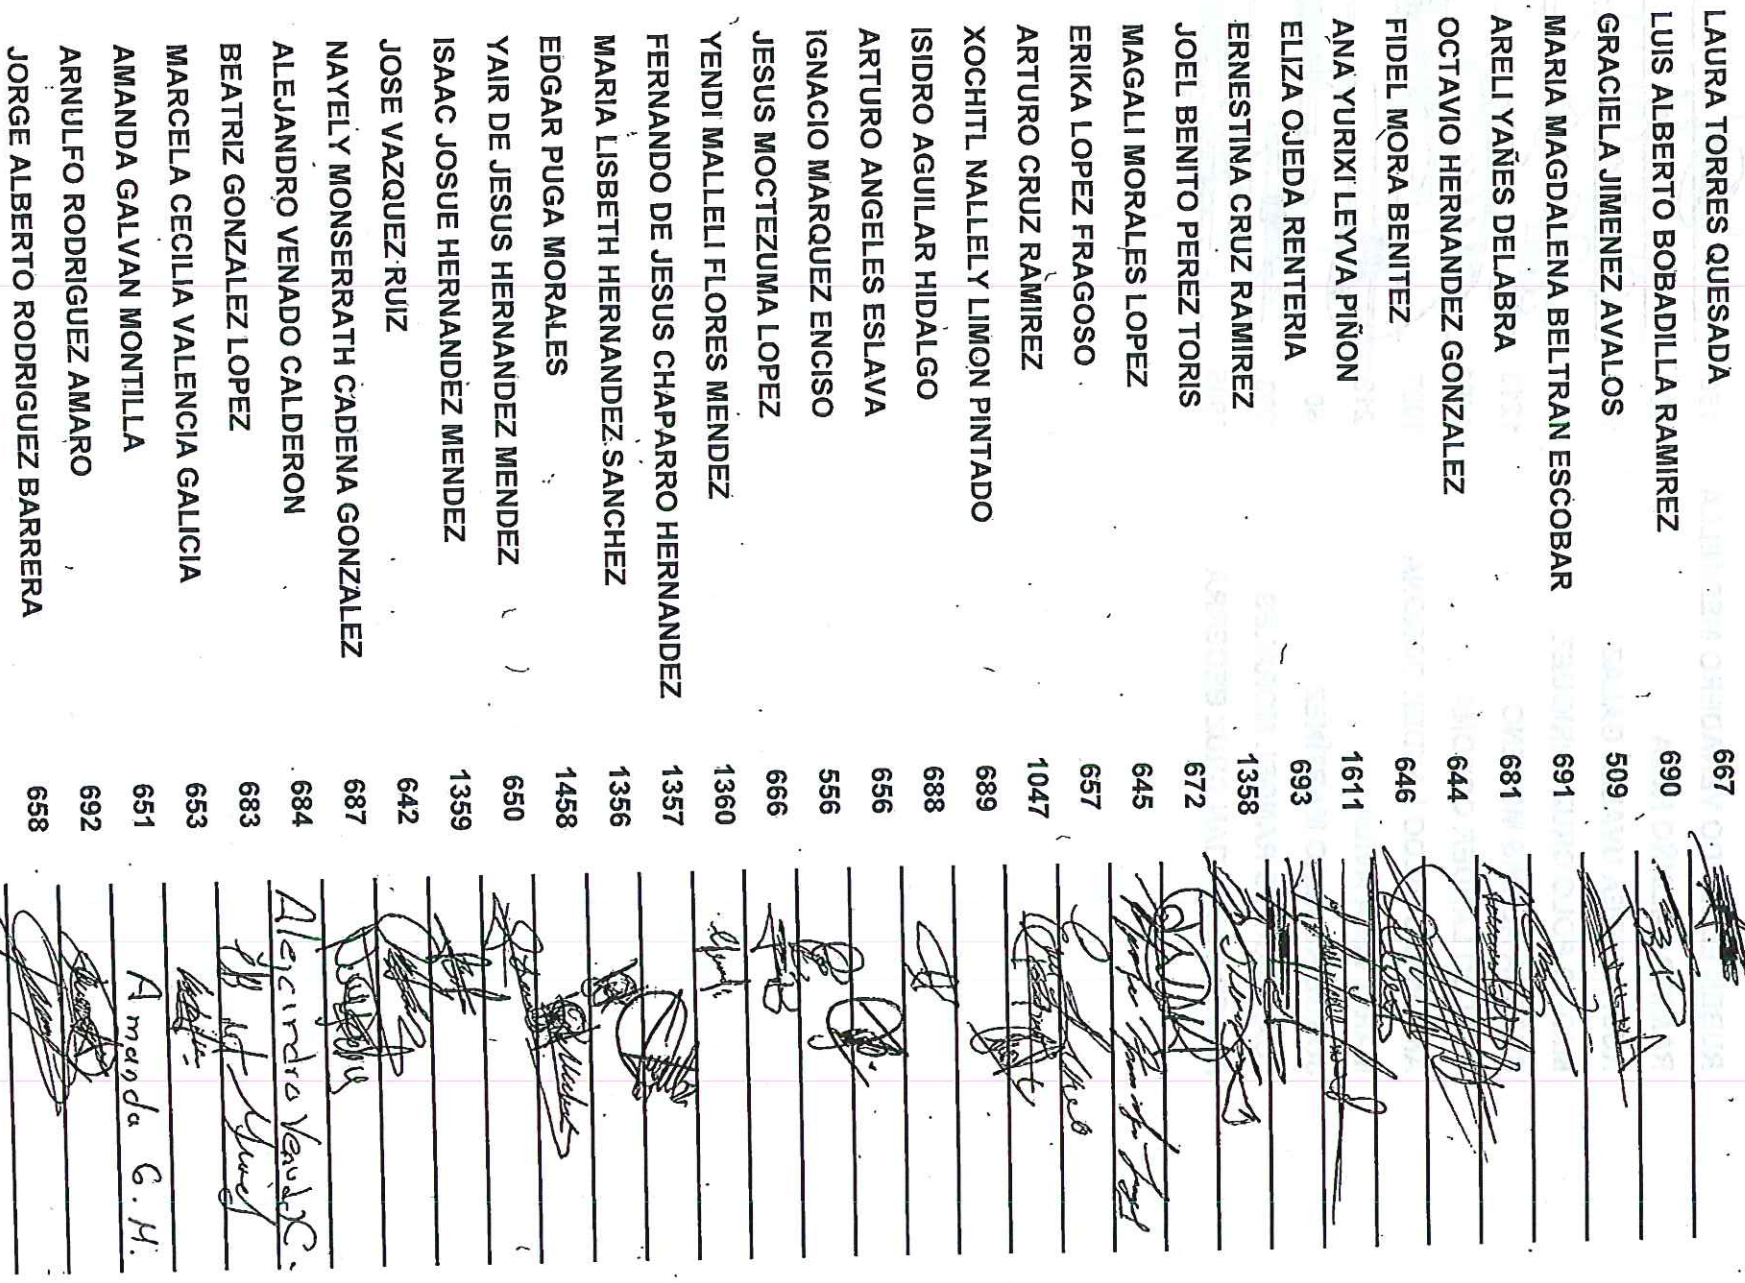 LAURA TORRES QUESADA 667
LUIS ALBERTO BOBADILLA RAMIREZ 690
GRACIELA JIMENEZ AVALOS 509
MARIA MAGDALENA BELTRAN ESCOBAR 691
ARELI YAÑES DELABRA 681
OCTAVIO HERNANDEZ GONZALEZ 644
FIDEL MORA BENITEZ 646
ANA YURIXI LEYVA PIÑON 1611
ELIZA OJEDA RENTERIA 693
ERNESTINA CRUZ RAMIREZ 1358
JOEL BENITO PEREZ TORIS 672
MAGALI MORALES LOPEZ 645
ERIKA LOPEZ FRAGOSO 657
ARTURO CRUZ RAMIREZ 1047
XOCHITL NALLELY LIMON PINTADO 689
ISIDRO AGUILAR HIDALGO 688
ARTURO ANGELES ESLAVA 656
IGNACIO MARQUEZ ENCISO 556
JESUS MOCTEZUMA LOPEZ 666
YENDI MALLELI FLORES MENDEZ 1360
FERNANDO DE JESUS CHAPARRO HERNANDEZ 1357
MARIA LISBETH HERNANDEZ SANCHEZ 1356
EDGAR PUGA MORALES 1458
YAIR DE JESUS HERNANDEZ MENDEZ 650
ISAAC JOSUE HERNANDEZ MENDEZ 1359
JOSE VAZQUEZ RUIZ 642
NAYELY MONSERRATH CADENA GONZALEZ 687
ALEJANDRO VENADO CALDERON 684 Alejandro Venado C.
BEATRIZ GONZALEZ LOPEZ 683
MARCELA CECILIA VALENCIA GALICIA 653
AMANDA GALVAN MONTILLA 651 Amanda G. M.
ARNULFO RODRIGUEZ AMARO 692
JORGE ALBERTO RODRIGUEZ BARRERA 658